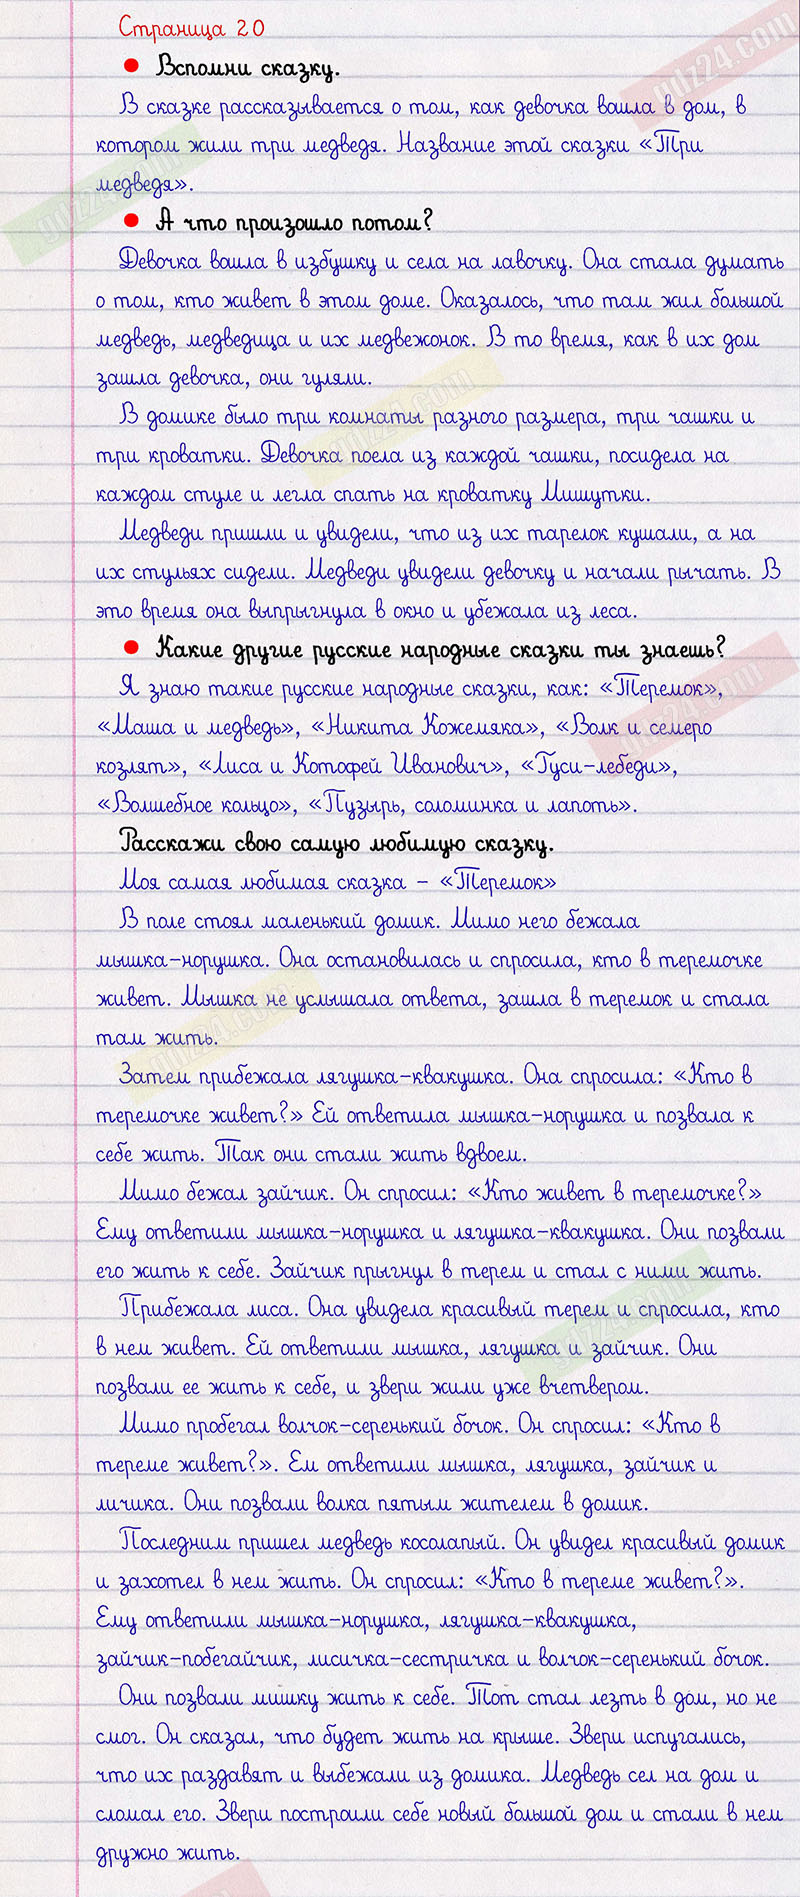 Страница 20
• Вспомни сказку.
В сказке рассказывается о том, как девочка вошла в дом, в
котором жили три медведя. Название этой сказки «Три
медведя».
• А что произошло потом?
Девочка вошла в избушку и села на лавочку. Она стала думать
о том, кто живет в этом доме. Оказалось, что там жил большой
медведь, медведица и их медвежонок. В то время, как в их дом
зашла девочка, они гуляли.
В домике было три комнаты разного размера, три чашки и
три кроватки. Девочка поела из каждой чашки, посидела на
каждом стуле и легла спать на кроватку Мишутки.
Медведи пришли и увидели, что из их тарелок кушали, а на
их стульях сидели. Медведи увидели девочку и начали рычать. В
это время она выпрыгнула в окно и убежала из леса.
• Какие другие русские народные сказки ты знаешь?
Я знаю такие русские народные сказки, как: «Теремок»,
«Маша и медведь», «Никита Кожемяка», «Волк и семеро
козлят», «Лиса и Котофей Иванович», «Гуси-лебеди»,
«Волшебное кольцо», «Пузырь, соломинка и лапоть».
Расскажи свою самую любимую сказку.
Моя самая любимая сказка – «Теремок»
В поле стоял маленький домик. Мимо него бежала
мышка-норушка. Она остановилась и спросила, кто в теремочке
живет. Мышка не услышала ответа, зашла в теремок и стала
там жить.
Затем прибежала лягушка-квакушка. Она спросила: «Кто в
теремочке живет?» Ей ответила мышка-норушка и позвала к
себе жить. Так они стали жить вдвоем.
Мимо бежал зайчик. Он спросил: «Кто живет в теремочке?»
Ему ответили мышка-норушка и лягушка-квакушка. Они позвали
его жить к себе. Зайчик прыгнул в терем и стал с ними жить.
Прибежала лиса. Она увидела красивый терем и спросила, кто
в нем живет. Ей ответили мышка, лягушка и зайчик. Они
позвали ее жить к себе, и звери жили уже вчетвером.
Мимо пробегал волчок-серенький бочок. Он спросил: «Кто в
тереме живет?». Ем ответили мышка, лягушка, зайчик и
личика. Они позвали волка пятым жителем в домик.
Последним пришел медведь косолапый. Он увидел красивый домик
и захотел в нем жить. Он спросил: «Кто в тереме живет?».
Ему ответили мышка-норушка, лягушка-квакушка,
зайчик-побегайчик, лисичка-сестричка и волчок-серенький бочок.
Они позвали мишку жить к себе. Тот стал лезть в дом, но не
смог. Он сказал, что будет жить на крыше. Звери испугались,
что их раздавят и выбежали из домика. Медведь сел на дом и
сломал его. Звери построили себе новый большой дом и стали в нем
дружно жить.
gdz24.com
gdz24.com
gdz24.com
gdz24.com
gdz24.com
gdz24.com